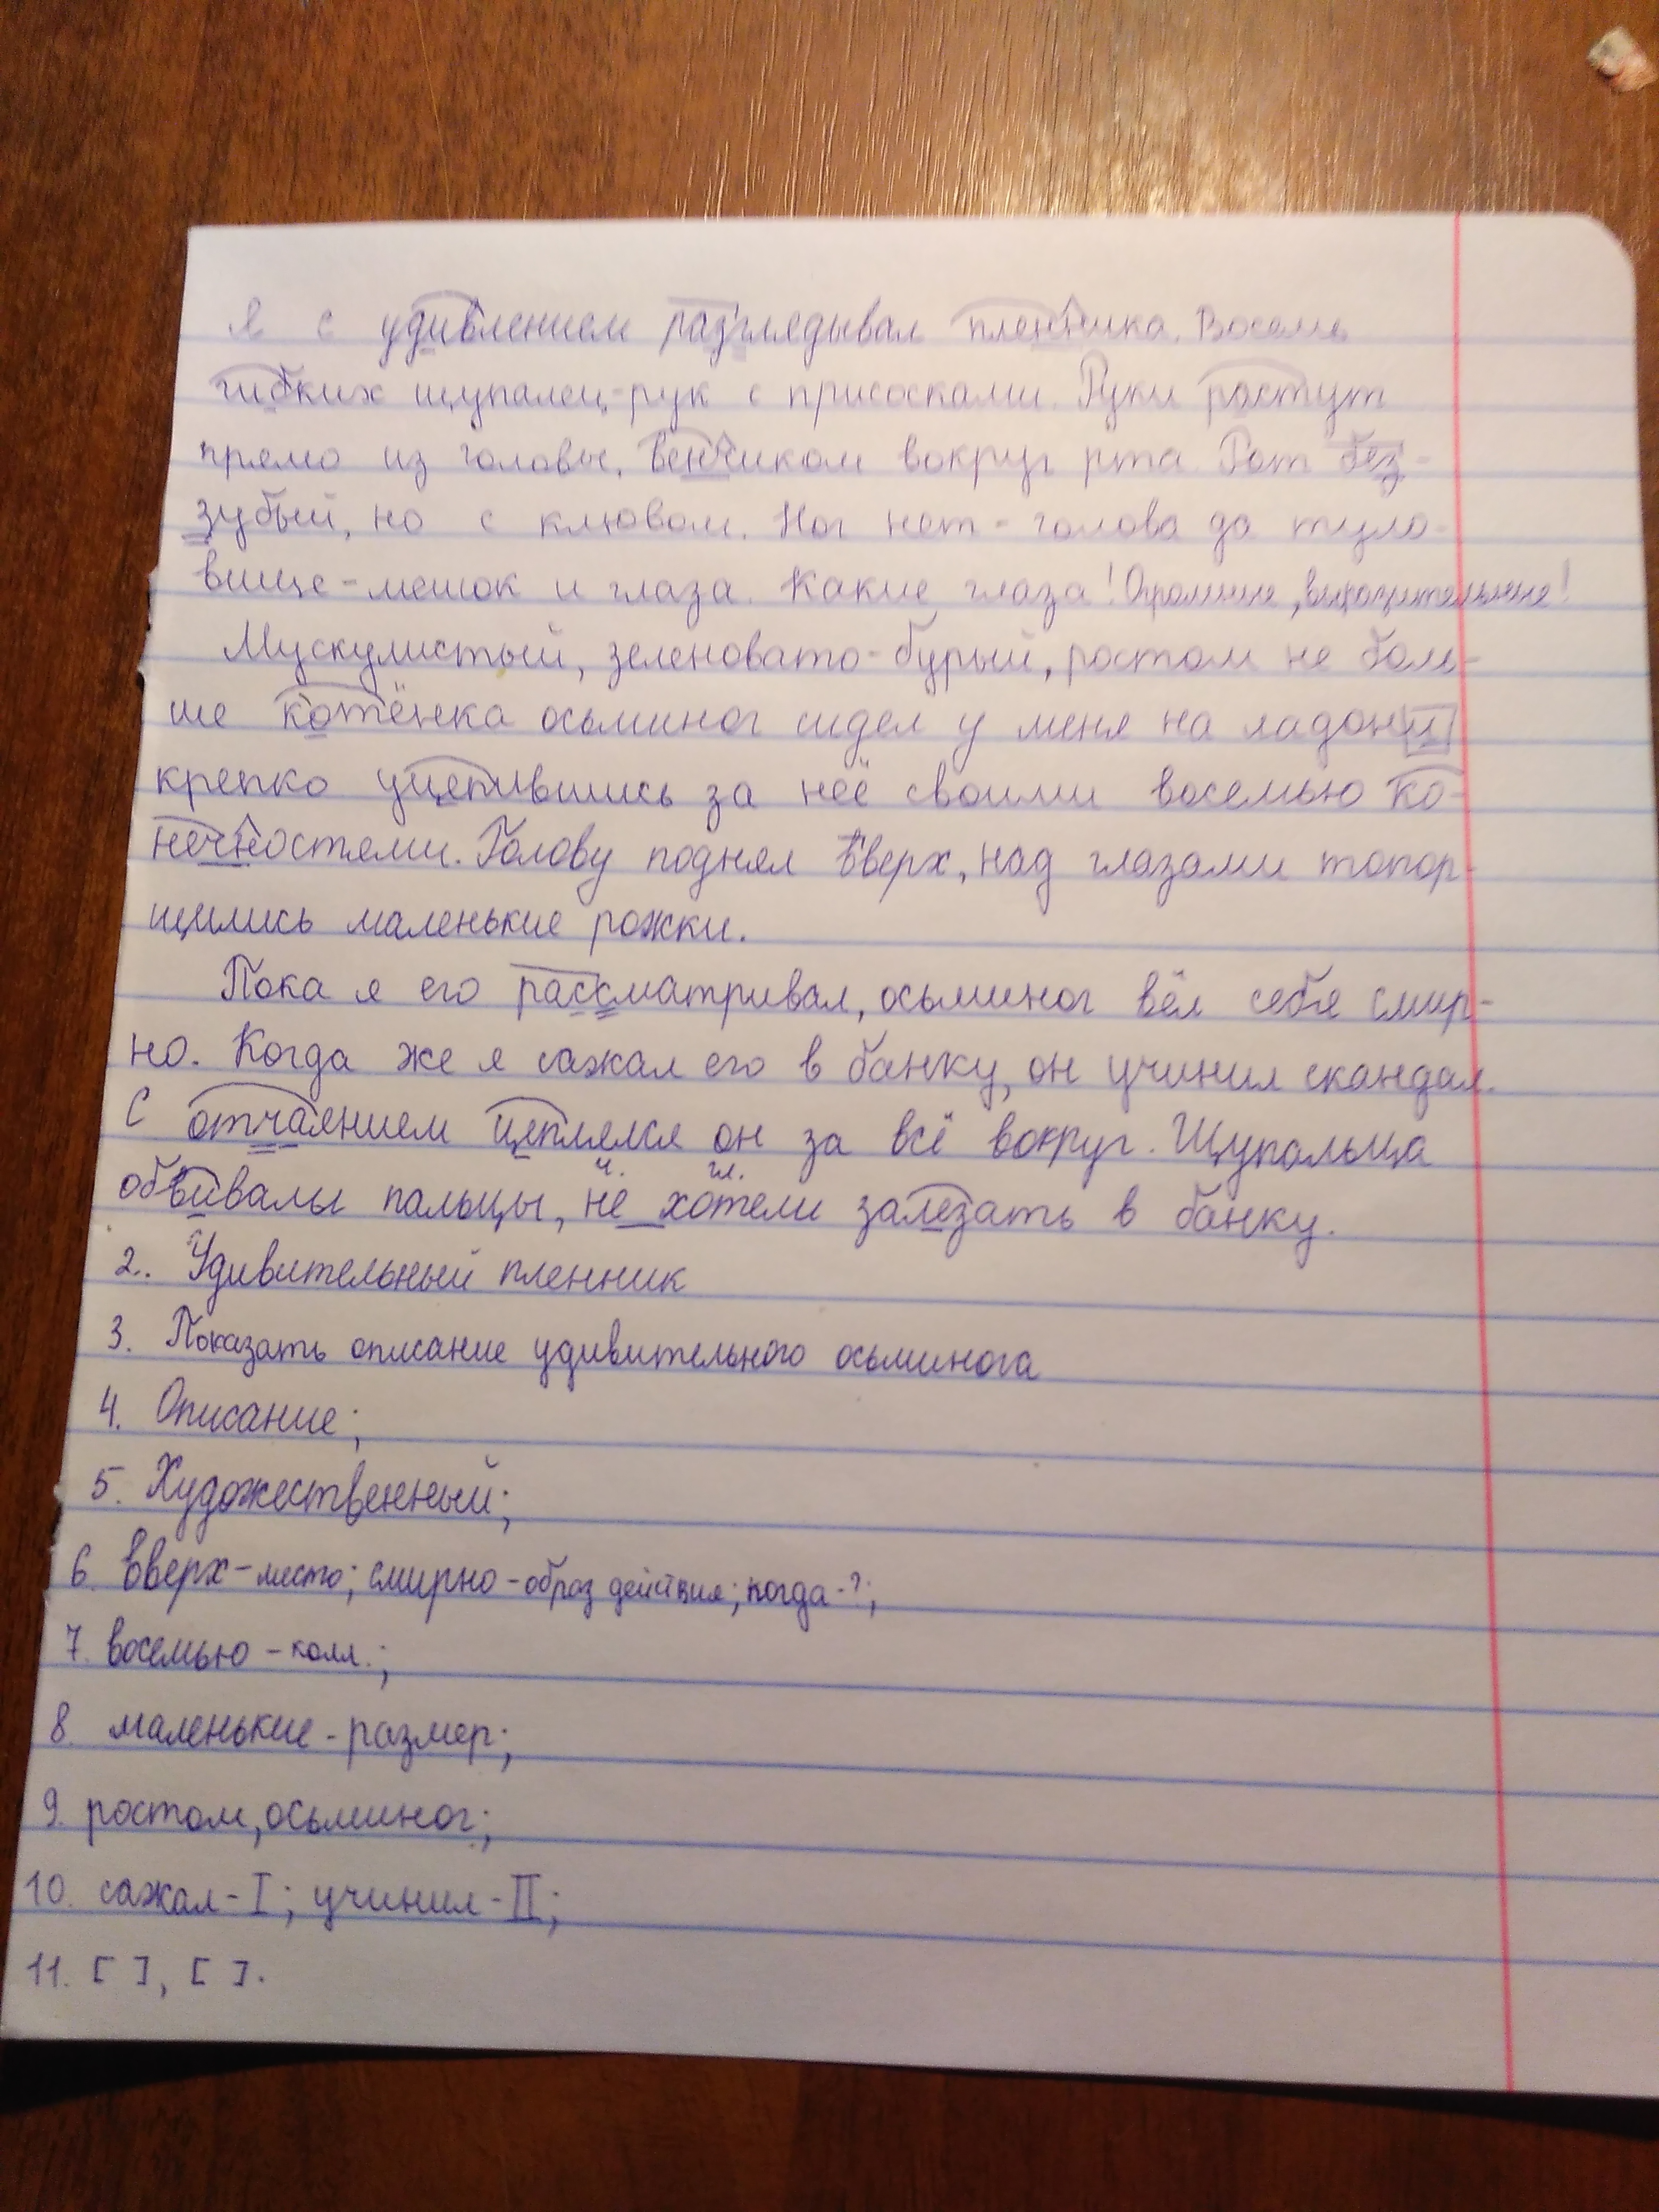 Я с удивлением разглядывал пленника. Восемь
гибких щупалец-рук с присосками. Руки растут
прямо из головы, венчиком вокруг рта. Рот без-
зубый, но с клювом. Ног нет - голова да туло-
вище-мешок и глаза. Какие глаза! Огромные, выразительные!
Мускулистый, зеленовато-бурый, ростом не боль-
ше котёнка осьминог сидел у меня на ладони
крепко уцепившись за неё своими восемью ко-
нечностями. Голову поднял вверх, над глазами топор-
щились маленькие рожки.
Пока я его рассматривал, осьминог вёл себя смир-
но. Когда же я сажал его в банку, он учинил скандал.
С отчаянием цеплялся он за всё вокруг. Щупальца
ч. гл.
обвивали пальцы, не хотели залезать в банку.
2. Удивительный пленник
3. Показать описание удивительного осьминога
4. Описание;
5. Художественный;
6. вверх - место; смирно - образ действия; когда - ?;
7. восемью - колл.;
8. маленькие - размер;
9. ростом, осьминог;
10. сажал - I; учинил - II;
11. [ ], [ ].